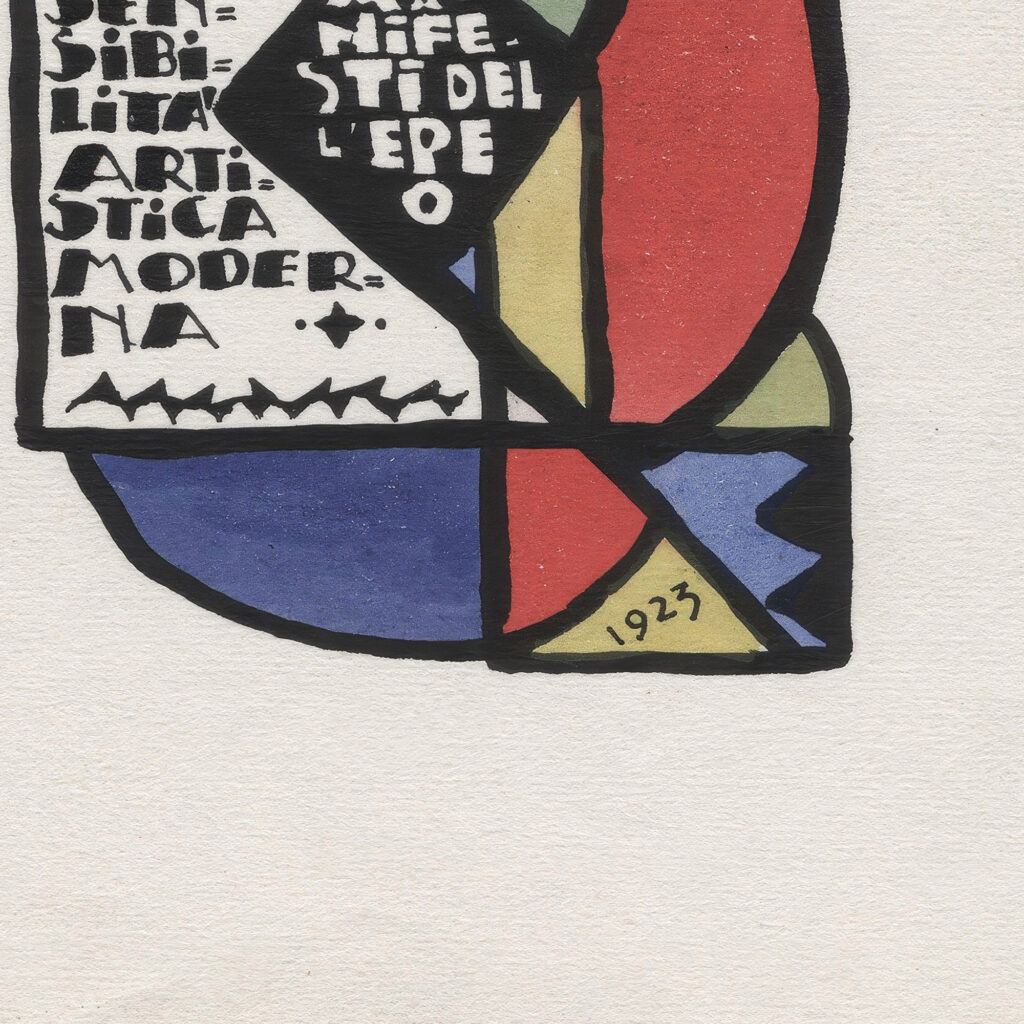 SEN=
SiBi=
LiTA'
ARTi=
STiCA
MODER=
NA
NiFE-
STi DEL
L'EPE
O
1923